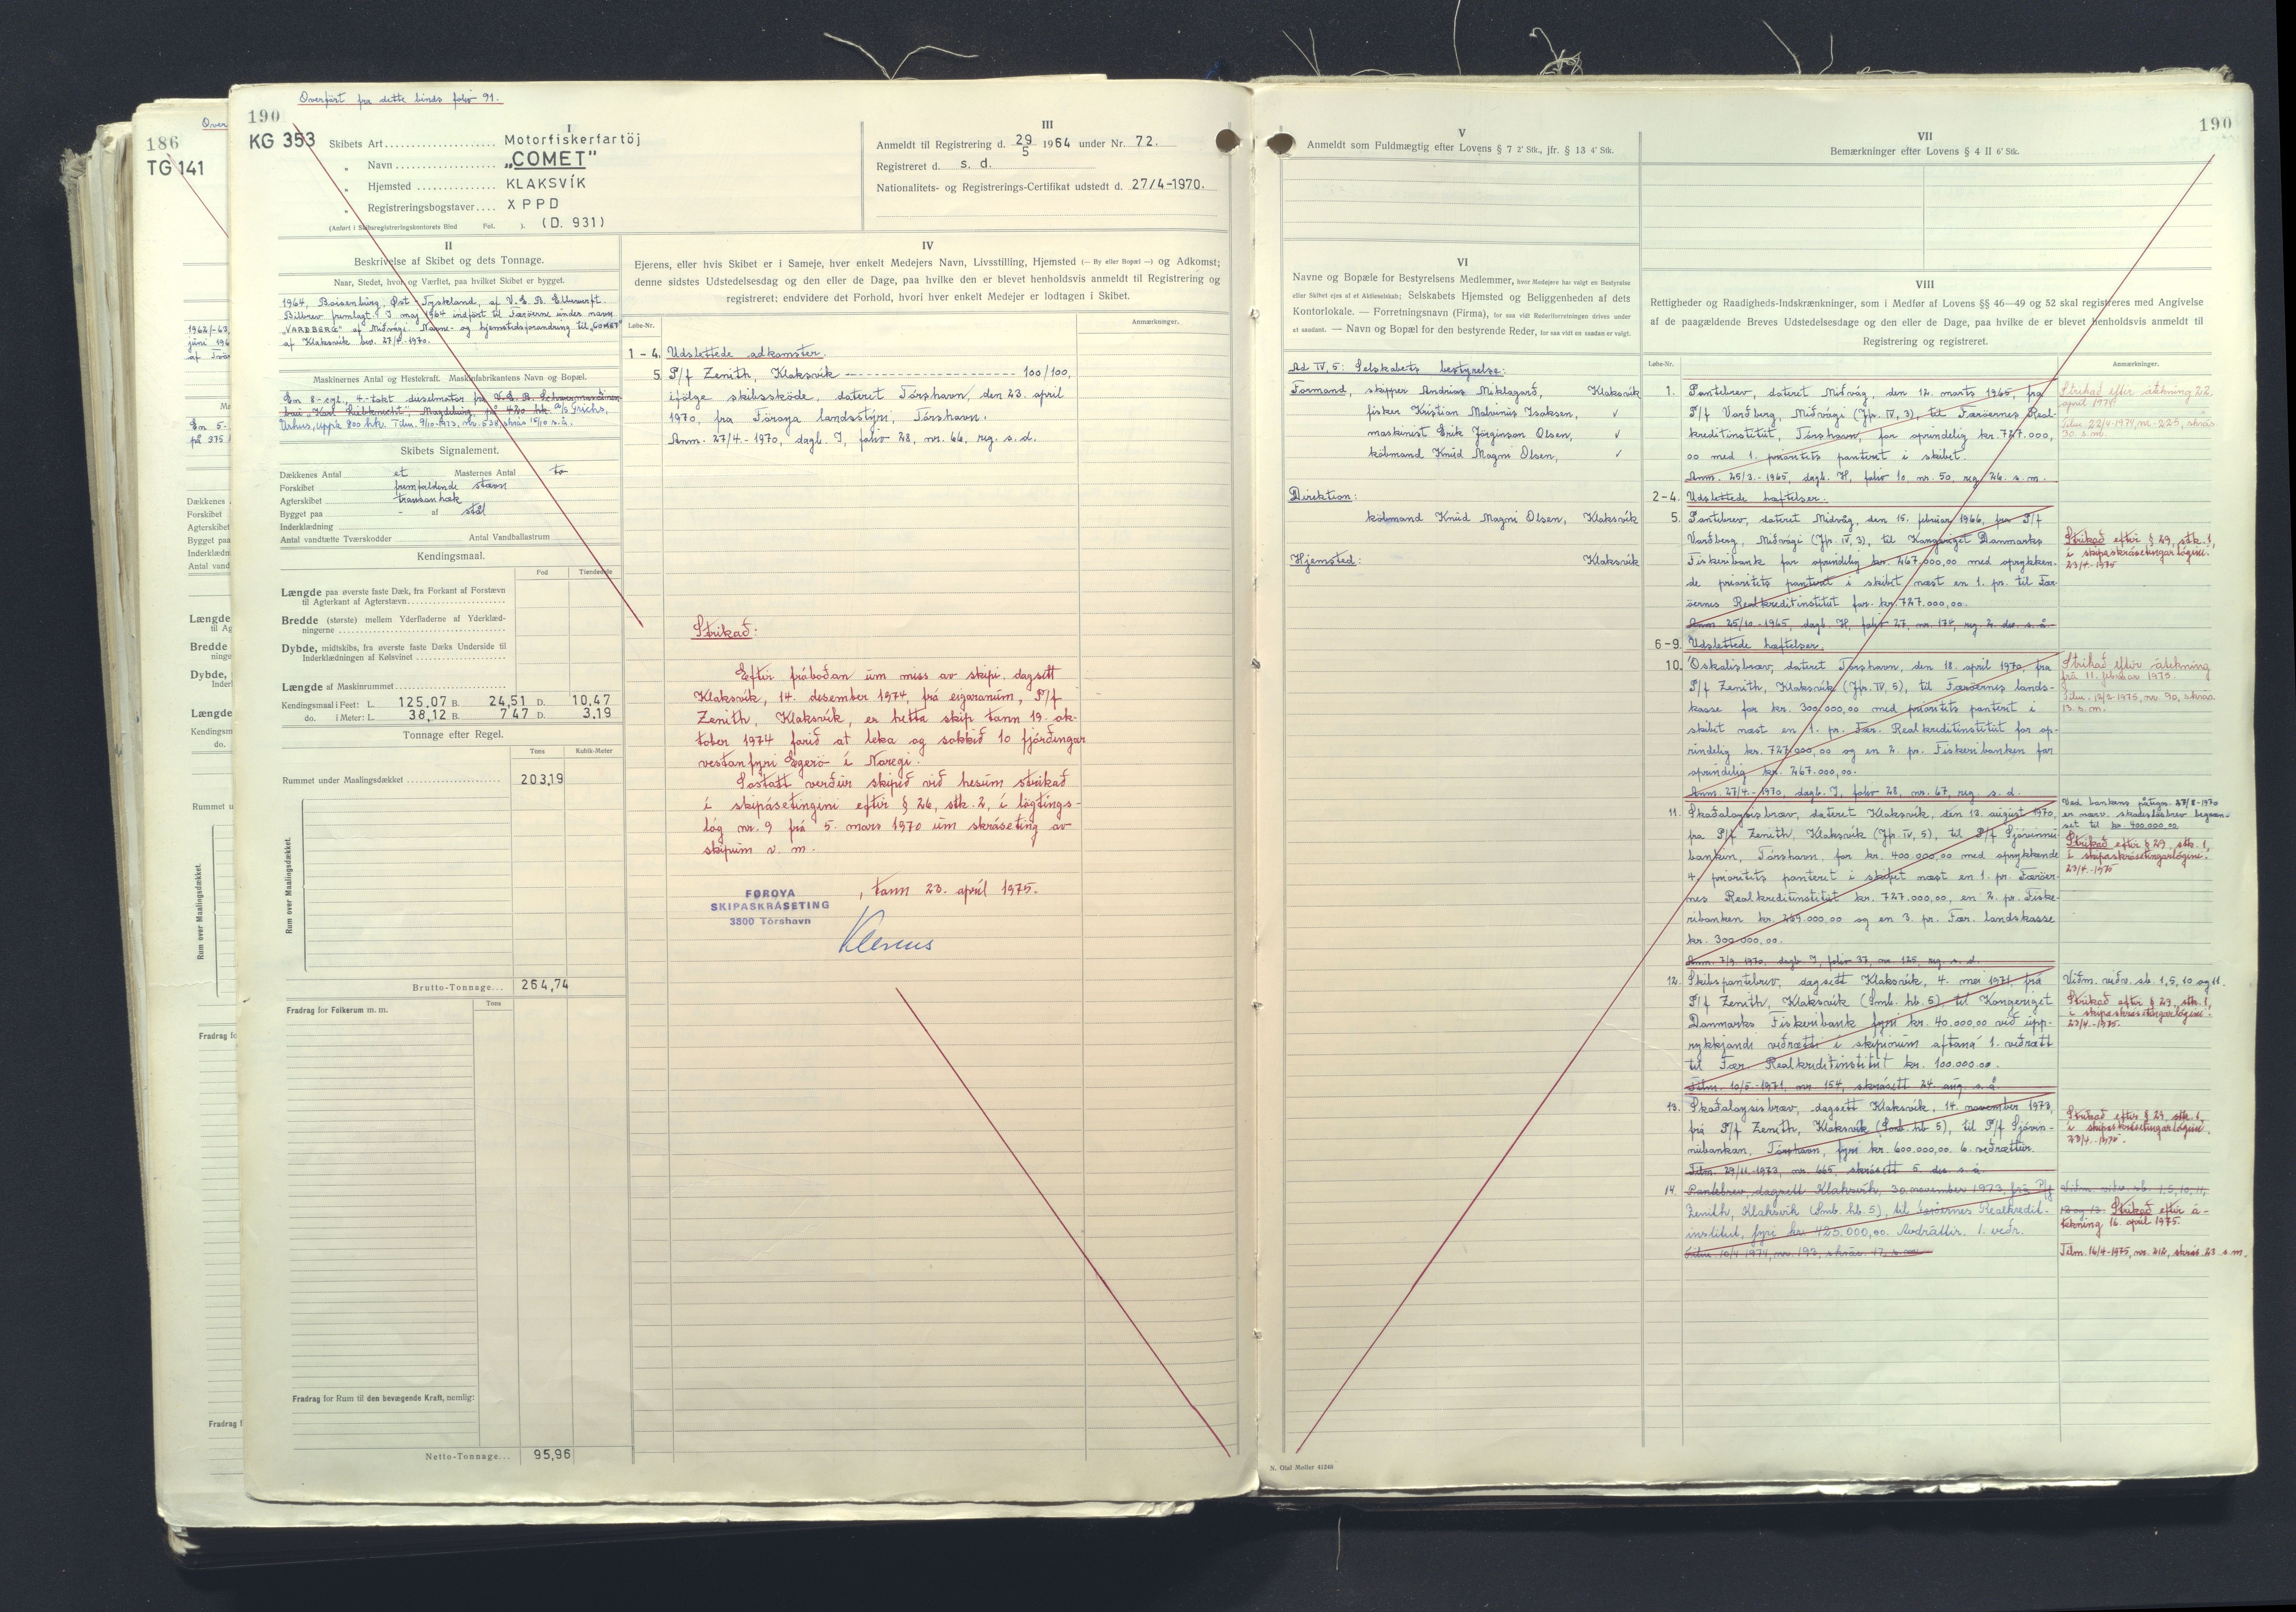 Overført fra dette binds folio 91.
190
KG 353
I
Skibets Art .... Motorfiskerfartöj
" Navn .... „COMET"
" Hjemsted .... KLAKSVÍK
" Registreringsbogstaver .... XPPD
(Anført i Skibsregistreringskontorets Bind Fol. ). (D. 931)
III
Anmeldt til Registrering d. 29/5 1964 under Nr. 72.
Registreret d. s. d.
Nationalitets- og Registrerings-Certifikat udstedt d. 27/4-1970.
II
Beskrivelse af Skibet og dets Tonnage.
Naar, Stedet, hvor og Værftet, paa hvilket Skibet er bygget.
1964, Boisenburg, Øst-Tyskland, af V.E.B. Elbewerft.
Bilbrev fremlagt. I maj 1964 indført til Færöerne under navn
„VARÐBERG" af Miðvági. Navne- og hjemstedsforandring til „COMET"
af Klaksvík bev. 27/4-1970.
Maskinernes Antal og Hestekraft. Maskinfabrikantens Navn og Bopæl.
Em 8-cyl., 4-takt dieselmotor fra V.E.B. Schwermaschinen-
bau „Karl Liebknecht", Magdeburg, på 420 hk. A/S Grichs,
Urhus, uppá 800 hk. Tilm. 9/10-1973, nr. 538, skrás 15/10 s.á.
Skibets Signalement.
Dækkenes Antal et Masternes Antal to
Forskibet fremfaldende stævn
Agterskibet transanhæk
Bygget paa - af stål
Inderklædning
Antal vandtætte Tværskodder Antal Vandballastrum
Kendingsmaal.
Fod Tiendedele
Længde paa øverste faste Dæk, fra Forkant af Forstævn
til Agterkant af Agterstævn
Bredde (største) mellem Yderfladerne af Yderklæd-
ningerne
Dybde, midtskibs, fra øverste faste Dæks Underside til
Inderklædningen af Kølsvinet
Længde af Maskinrummet
Kendingsmaal i Feet: L. 125,07 B. 24,51 D. 10,47
do. i Meter: L. 38,12 B. 7,47 D. 3,19
Tonnage efter Regel.
Tons Kubik-Meter
Rummet under Maalingsdækket 203,19
Rum over Maalingsdækket.
Brutto-Tonnage... 264,74
Tons
Fradrag for Folkerum m. m.
Fradrag for Rum til den bevægende Kraft, nemlig:
Netto-Tonnage... 95,96
IV
Ejerens, eller hvis Skibet er i Sameje, hver enkelt Medejers Navn, Livsstilling, Hjemsted (— By eller Bopæl —) og Adkomst;
denne sidstes Udstedelsesdag og den eller de Dage, paa hvilke den er blevet henholdsvis anmeldt til Registrering og
registreret; endvidere det Forhold, hvori hver enkelt Medejer er lodtagen i Skibet.
Løbe-Nr. Anmærkninger.
1 - 4. Udslettede adkomster.
5. P/f Zenith, Klaksvík ---- 100/100,
ifölge skibsskøde, dateret Tórshavn, den 23. april
1970, fra Föroya landsstýri, Tórshavn.
Anm. 27/4.-1970, dagb. I, folio 28, nr. 66, reg. s. d.
Strikað:
Eftir fráboðan um miss av skipi, dagsett
Klaksvík, 14. desember 1974, frá eigaranum, P/f
Zenith, Klaksvík, er hetta skip tann 19. ok-
tober 1974 farið at leka og sokkið 10 fjórðingar
vestanfyri Egerö í Noregi.
Sostatt verður skipið við hesum strikað
í skipásetingini eftir § 26, stk. 2, í lögtings-
lóg nr. 9 frá 5. mars 1970 um skráseting av
skipum v. m.
FØROYA
SKIPASKRÁSETING
3800 Tórshavn
, tann 23. apríl 1975.
V
Anmeldt som Fuldmægtig efter Lovens § 7 2' Stk., jfr. § 13 4' Stk.
VI
Navne og Bopæle for Bestyrelsens Medlemmer, hvor Medejere har valgt en Bestyrelse
eller Skibet ejes af et Aktieselskab; Selskabets Hjemsted og Beliggenheden af dets
Kontorlokale. — Forretningsnavn (Firma), for saa vidt Rederiforretningen drives under
et saadant. — Navn og Bopæl for den bestyrende Reder, for saa vidt en saadan er valgt.
Ad IV, 5: Selskabets bestyrelse:
Formand, skipper Andrias Miklagarð, Klaksvík
fisker Kristian Malvinus Isaksen, ✓
maskinist Erik Jörginson Olsen, ✓
købmand Knúd Magni Olsen, ✓
Direktion:
købmand Knúd Magni Olsen, Klaksvík
Hjemsted: Klaksvík
N. Olaf Møller 41248
190
VII
Bemærkninger efter Lovens § 4 II 6' Stk.
VIII
Rettigheder og Raadigheds-Indskrænkninger, som i Medfør af Lovens §§ 46—49 og 52 skal registreres med Angivelse
af de paagældende Breves Udstedelsesdage og den eller de Dage, paa hvilke de er blevet henholdsvis anmeldt til
Registrering og registreret.
Løbe-Nr. Anmærkninger.
1. Pantebrev, dateret Miðvág, den 12. marts 1965, fra
P/f Varðberg, Miðvági (Jfr. IV, 3), til Færöernes Real-
kreditinstitut, Tórshavn, for oprindelig kr. 727.000,
00 med 1. prioritets panteret i skibet.
Anm. 25/3.-1965, dagb. H, folio 10, nr. 50, reg. 26. s. m.
Strikað eftir átekning 22.
apríl 1974.
Tilm. 22/4-1974, nr. 225, skrás.
30. s.m.
2-4. Udslettede hæftelser.
5. Pantebrev, dateret Miðvág, den 15. februar 1966, fra P/f
Varðberg, Miðvági (Jfr. IV, 3), til Kongeriget Danmarks
Fiskeribank for oprindelig kr. 267.000,00 med oprykken-
de prioritets panteret i skibet næst en 1. pr. til Fær-
öernes Realkreditinstitut for kr. 727.000,00.
Anm. 25/10-1965, dagb. H, folio 27, nr. 174, reg. 2. dec. s. å.
Strikað eftir § 29, stk. 1,
í skipaskrásetingarlógini.
23/4.-1975
6-9. Udslettede hæftelser.
10. Oskalisbræv, dateret Tórshavn, den 18. april 1970, fra
P/f Zenith, Klaksvík (Jfr. IV, 5), til Færöernes lands-
kasse for kr. 300.000,00 med prioritets panteret i
skibet næst en 1. pr. Fær. Realkreditinstitut for op-
rindelig kr. 727.000,00 og en 2. pr. Fiskeribanken for
oprindelig kr. 267.000,00.
Anm. 27/4.-1970, dagb. I, folio 28, nr. 67, reg. s. d.
Strikað eftir átekning
frá 11. februar 1975.
Tilm. 12/2-1975, nr. 90, skrás.
13. s.m.
11. Skaðaloysisbræv, dateret Klaksvík, den 13. august 1970,
fra P/f Zenith, Klaksvík (Jfr. IV, 5), til P/f Sjóvinnu-
bankin, Tórshavn, for kr. 400.000,00 med oprykkende
4. prioritets panteret i skibet næst en 1. pr. Færöer-
nes Realkreditinstitut kr. 727.000,00, en 2. pr. Fiske-
ribanken kr. 269.000,00 og en 3. pr. Fær. landskasse
kr. 300.000,00.
Anm. 7/9.1970, dagb. I, folio 37, nr. 125, reg. s. d.
Ved bankens påtegn. 27/8-1970
er nærv. skadeslösbrev begræn-
set til kr. 400.000,00.
Strikað eftir § 29, stk. 1,
í skipaskrásetingarlógini.
23/4.-1975
12. Skibspantebrev, dagsett Klaksvík, 4. mei 1971, frá
P/f Zenith, Klaksvík (Smb. hb. 5) til Kongeriget
Danmarks Fiskeribank fyri kr. 40.000,00 við upp-
rykkjandi veðrætti í skipinum aftaná 1. veðrætt
til Fær. Realkreditinstitut kr. 100.000,00.
Tilm. 10/5-1971, nr. 154, skrásett 24. aug. s. á.
Viðm. veðr. sb. 1, 5, 10 og 11.
Strikað eftir § 29, stk. 1,
í skipaskrásetingarlógini.
23/4.-1975.
13. Skaðaloysisbræv, dagsett Klaksvík, 14. november 1973,
frá P/f Zenith, Klaksvík (Smb. hb. 5), til P/f Sjóvin-
nubankan, Tórshavn, fyri kr. 600.000,00. 6. veðrættur.
Tilm. 29/11-1973, nr. 665, skrásett 5. des. s. á.
Strikað eftir § 29, stk. 1,
í skipaskrásetingarlógini.
23/4.-1975.
14. Pantebrev, dagsett Klaksvík, 30. november 1973, frá P/f
Zenith, Klaksvík (Smb. hb. 5), til Færöernes Realkredit-
institut, fyri kr. 425.000,00. Avdráttir. 1. veðr.
Tilm. 10/4 1974, nr. 193, skrás. 17. s.m.
Viðm. veðr. sb. 1, 5, 10, 11,
12 og 13. Strikað eftir á-
tekning 16. apríl 1975.
Tilm. 16/4-1975, nr. 212, skrás 23. s.m.
186
TG 141
Over
1962/-63,
juni 196